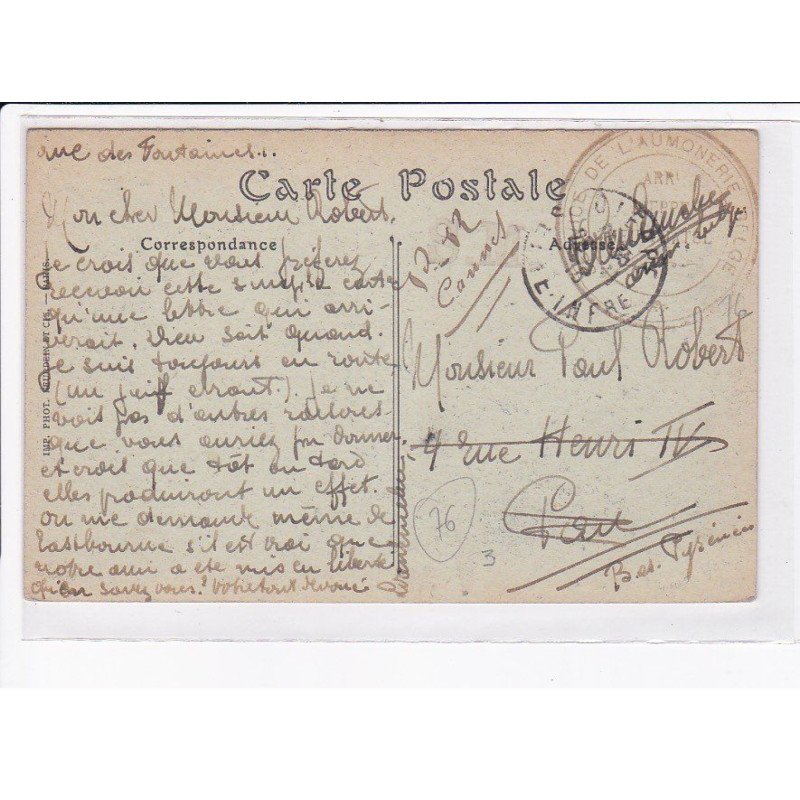 rue des Fontaines..
Carte Postale
Mon cher Monsieur Robert.
Correspondance
Adresse
Je crois que vous préférez
recevoir cette simple carte
qu'une lettre qui arri-
verait, Dieu sait quand.
Je suis toujours en route
(un juif errant). Je ne
vois pas d'autres
que vous auriez pu donner
et croit que tôt ou tard
elles produiront un effet.
on me demande même de
Eastbourne s'il est vrai que
notre ami a été mis en liberté
qu'en savez vous? Votre tout dévoué
IMP. PHOT. ET CIE. — PARIS.
DE L'AUMONERIE BELGE
ARRI
INFRE
Cannes
76
Monsieur Paul Robert
4 rue Henri IV
Pau
Bas. Pyrénées
76
3